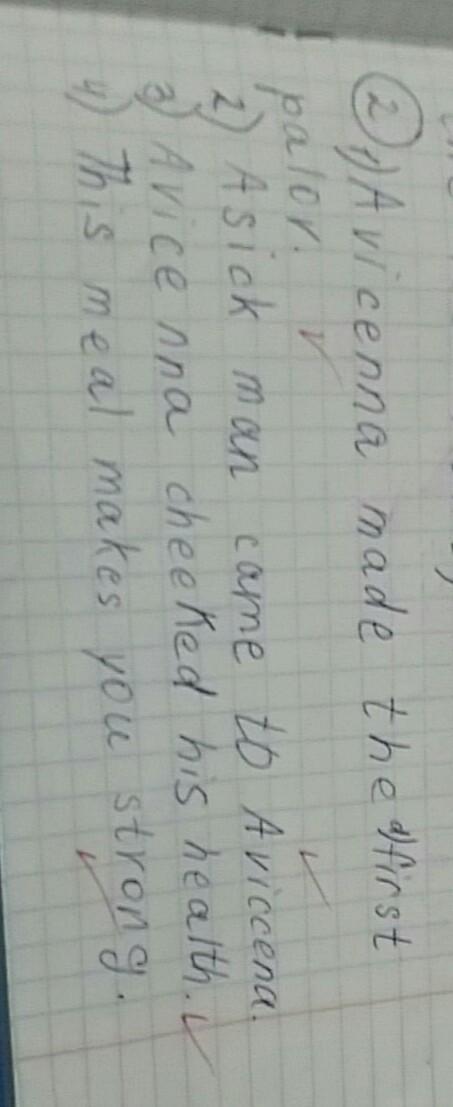 ② 1) Avicenna made the a) first
palov.
2) A sick man came to Aviccena.
3) Avicenna cheeked his health.
4) This meal makes you strong.